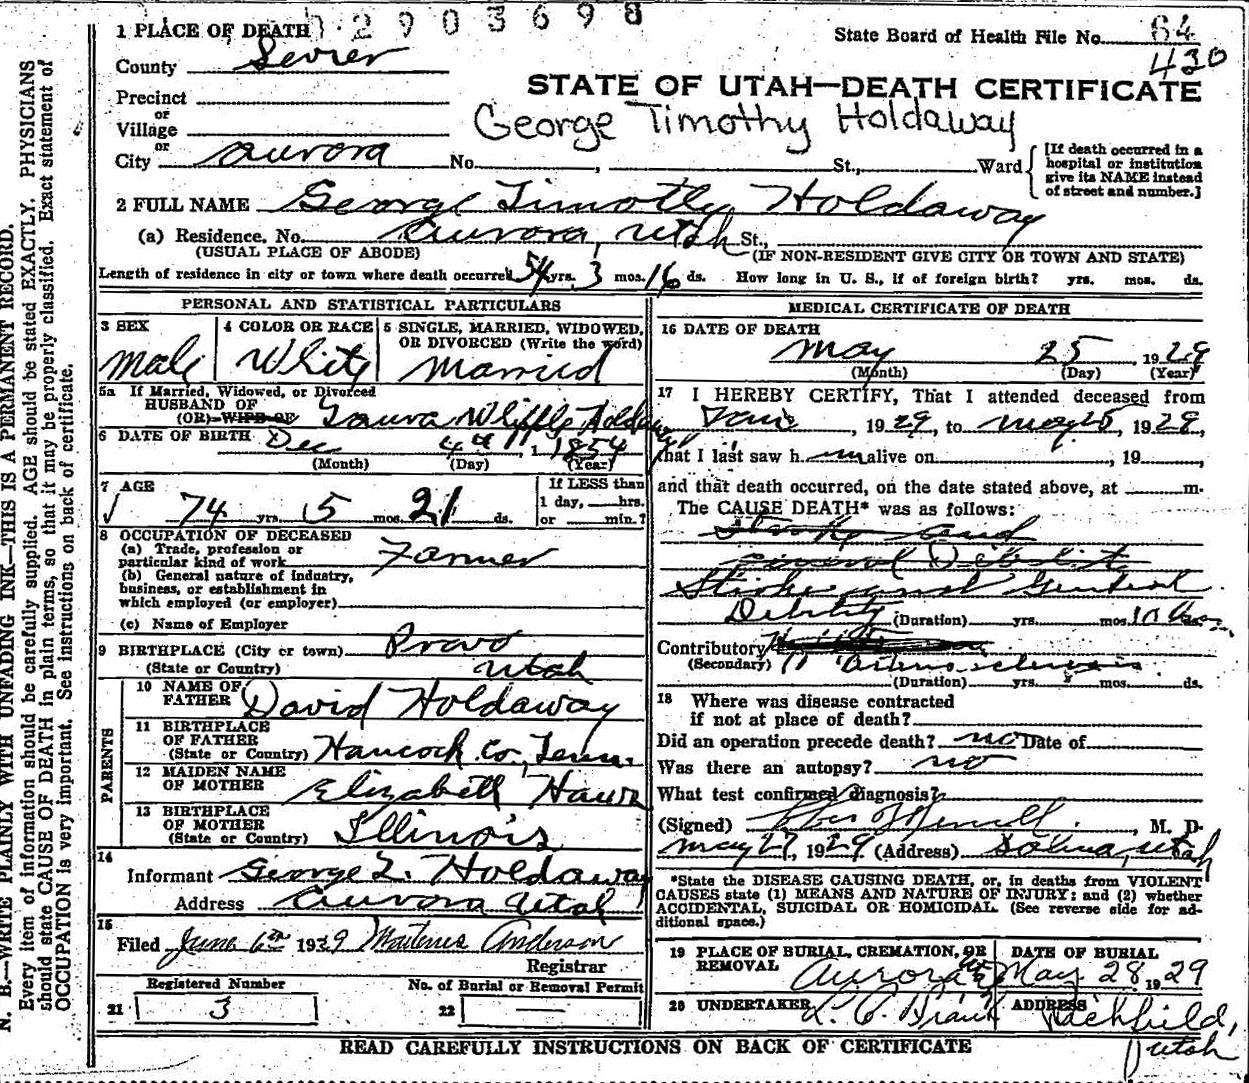 2903698
1 PLACE OF DEATH
County Sevier
State Board of Health File No. 64
430
Precinct
or
Village
or
City Aurora No. , St., Ward
[If death occurred in a hospital or institution give its NAME instead of street and number.]
STATE OF UTAH—DEATH CERTIFICATE
George Timothy Holdaway
2 FULL NAME George Timothy Holdaway
(a) Residence. No. Aurora, Utah St.,
(USUAL PLACE OF ABODE) (IF NON-RESIDENT GIVE CITY OR TOWN AND STATE)
Length of residence in city or town where death occurred 54 yrs. 3 mos. 16 ds. How long in U. S., if of foreign birth? yrs. mos. ds.
PERSONAL AND STATISTICAL PARTICULARS
3 SEX
Male
4 COLOR OR RACE
White
5 SINGLE, MARRIED, WIDOWED, OR DIVORCED (Write the word)
Married
5a If Married, Widowed, or Divorced
HUSBAND OF
(OR) WIFE OF Laura Holdaway
6 DATE OF BIRTH Dec 4th 1854
(Month) (Day) (Year)
7 AGE
74 yrs. 5 mos. 21 ds.
If LESS than
1 day, hrs.
or min.?
8 OCCUPATION OF DECEASED
(a) Trade, profession or
particular kind of work Farmer
(b) General nature of industry,
business, or establishment in
which employed (or employer)
(c) Name of Employer
9 BIRTHPLACE (City or town) Provo
(State or Country) Utah
PARENTS
10 NAME OF
FATHER David Holdaway
11 BIRTHPLACE
OF FATHER
(State or Country) Hancock Co., Tenn.
12 MAIDEN NAME
OF MOTHER Elizabeth Haws
13 BIRTHPLACE
OF MOTHER
(State or Country) Illinois
14
Informant George L. Holdaway
Address Aurora Utah
15
Filed June 6th 1929 Anderson
Registrar
Registered Number
21 3
No. of Burial or Removal Permit
22 —
MEDICAL CERTIFICATE OF DEATH
16 DATE OF DEATH
May 25, 1929
(Month) (Day) (Year)
17 I HEREBY CERTIFY, That I attended deceased from
, 1929, to May 25, 1929,
that I last saw h m alive on , 19
and that death occurred, on the date stated above, at m.
The CAUSE DEATH* was as follows:
Stroke and
General Debility
Stroke and General
Debility (Duration) yrs. mos. 10 ds.
Contributory
(Secondary) Arteriosclerosis
(Duration) yrs. mos. ds.
18 Where was disease contracted
if not at place of death?
Did an operation precede death? no Date of
Was there an autopsy? no
What test confirmed diagnosis?
(Signed) , M. D.
May 27, 1929 (Address) Salina, Utah
*State the DISEASE CAUSING DEATH, or, in deaths from VIOLENT
CAUSES state (1) MEANS AND NATURE OF INJURY; and (2) whether
ACCIDENTAL, SUICIDAL OR HOMICIDAL. (See reverse side for ad-
ditional space.)
19 PLACE OF BURIAL, CREMATION, OR
REMOVAL Aurora
DATE OF BURIAL
May 28, 1929
20 UNDERTAKER
ADDRESS Richfield,
Utah
READ CAREFULLY INSTRUCTIONS ON BACK OF CERTIFICATE
N. B.—WRITE PLAINLY WITH UNFADING INK—THIS IS A PERMANENT RECORD.
Every item of information should be carefully supplied. AGE should be stated EXACTLY. PHYSICIANS
should state CAUSE OF DEATH in plain terms, so that it may be properly classified. Exact statement of
OCCUPATION is very important. See instructions on back of certificate.